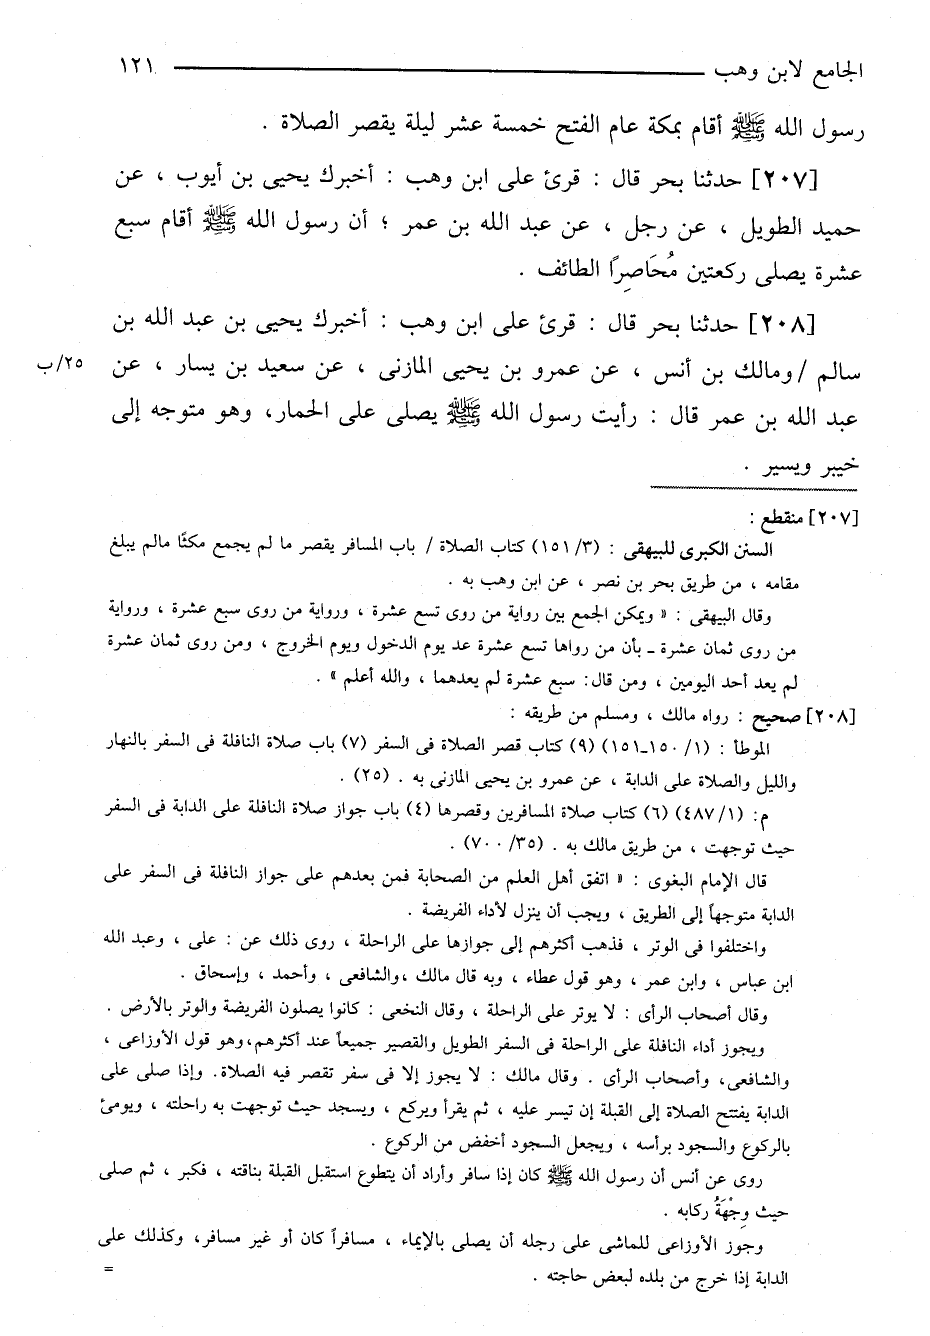 الجامع لابن وهب ١٢١
رسول الله ﷺ أقام بمكة عام الفتح خمسة عشر ليلة يقصر الصلاة .
[٢٠٧] حدثنا بحر قال : قرئ على ابن وهب : أخبرك يحيى بن أيوب ، عن
حميد الطويل ، عن رجل ، عن عبد الله بن عمر ؛ أن رسول الله ﷺ أقام سبع
عشرة يصلى ركعتين مُحَاصِرًا الطائف .
[٢٠٨] حدثنا بحر قال : قرئ على ابن وهب : أخبرك يحيى بن عبد الله بن
سالم / ومالك بن أنس ، عن عمرو بن يحيى المازنى ، عن سعيد بن يسار ، عن
٢٥/ب
عبد الله بن عمر قال : رأيت رسول الله ﷺ يصلى على الحمار، وهو متوجه إلى
خيبر ويسير .
[٢٠٧] منقطع :
السنن الكبرى للبيهقى : (٣/ ١٥١) كتاب الصلاة / باب المسافر يقصر ما لم يجمع مكثًا مالم يبلغ
مقامه ، من طريق بحر بن نصر ، عن ابن وهب به .
وقال البيهقى : « ويمكن الجمع بين رواية من روى تسع عشرة ، ورواية من روى سبع عشرة ، ورواية
من روى ثمان عشرة ـ بأن من رواها تسع عشرة عد يوم الدخول ويوم الخروج ، ومن روى ثمان عشرة
لم يعد أحد اليومين ، ومن قال: سبع عشرة لم يعدهما ، والله أعلم » .
[٢٠٨] صحيح : رواه مالك ، ومسلم من طريقه :
الموطأ : (١/ ١٥٠ـ١٥١) (٩) كتاب قصر الصلاة فى السفر (٧) باب صلاة النافلة فى السفر بالنهار
والليل والصلاة على الدابة ، عن عمرو بن يحيى المازنى به . (٢٥) .
م: (١/ ٤٨٧) (٦) كتاب صلاة المسافرين وقصرها (٤) باب جواز صلاة النافلة على الدابة فى السفر
حيث توجهت ، من طريق مالك به . (٣٥/ ٧٠٠) .
قال الإمام البغوى : « اتفق أهل العلم من الصحابة فمن بعدهم على جواز النافلة فى السفر على
الدابة متوجهاً إلى الطريق ، ويجب أن ينزل لأداء الفريضة .
واختلفوا فى الوتر ، فذهب أكثرهم إلى جوازها على الراحلة ، روى ذلك عن : على ، وعبد الله
ابن عباس ، وابن عمر ، وهو قول عطاء ، وبه قال مالك ،والشافعى ، وأحمد ، وإسحاق .
وقال أصحاب الرأى : لا يوتر على الراحلة ، وقال النخعى : كانوا يصلون الفريضة والوتر بالأرض .
ويجوز أداء النافلة على الراحلة فى السفر الطويل والقصير جميعاً عند أكثرهم،وهو قول الأوزاعى ،
والشافعى، وأصحاب الرأى . وقال مالك : لا يجوز إلا فى سفر تقصر فيه الصلاة. وإذا صلى على
الدابة يفتتح الصلاة إلى القبلة إن تيسر عليه ، ثم يقرأ ويركع ، ويسجد حيث توجهت به راحلته ، ويومئ
بالركوع والسجود برأسه ، ويجعل السجود أخفض من الركوع .
روى عن أنس أن رسول الله ﷺ كان إذا سافر وأراد أن يتطوع استقبل القبلة بناقته ، فكبر ، ثم صلى
حيث وِجْهَةُ ركابه .
وجوز الأوزاعى للماشى على رجله أن يصلى بالإيماء ، مسافراً كان أو غير مسافر، وكذلك على
الدابة إذا خرج من بلده لبعض حاجته .
=